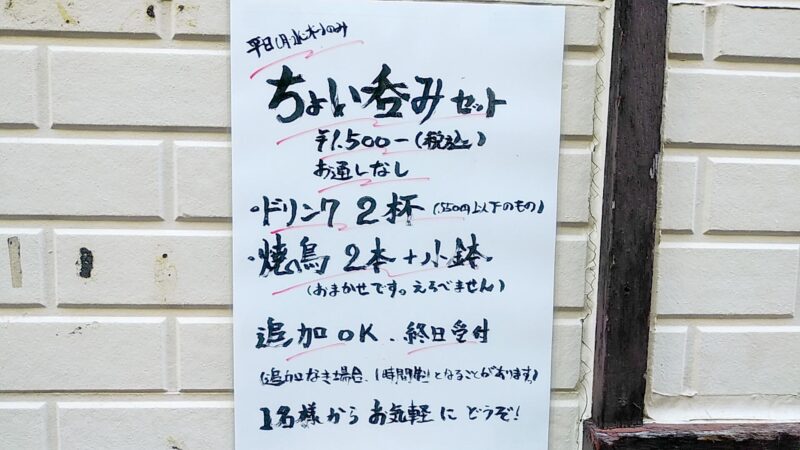 平日(月、水、木)のみ
ちょい呑みセット
¥1,500-(税込)
お通しなし
・ドリンク 2杯 (550円以下のもの)
・焼鳥 2本+小鉢
(おまかせです。えらべません)
追加OK、終日受付
(追加なき場合、1時間制となることがあります)
1名様からお気軽にどうぞ!